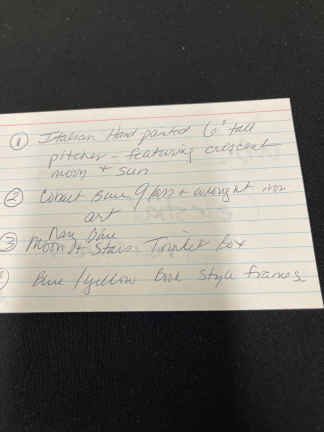 ① Italian Hand painted 6" tall
pitcher - featuring crescent
moon + sun
② Cobalt blue glass + wrought iron
art
Navy blue
③ Moon + Stars Trinket box
Blue/yellow Book style frames